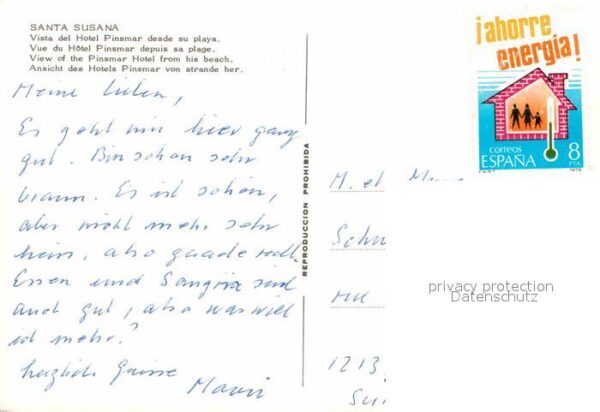 SANTA SUSANA
Vista del Hotel Pinsmar desde su playa.
Vue du Hôtel Pinsmar depuis sa plage.
View of the Pinsmar Hotel from his beach.
Ansicht des Hotels Pinsmar von strande her.
Meine Lieben,
Es geht mir hier ganz
gut. Bin schon sehr
braun. Es ist schön,
aber nicht mehr sehr
heiss, also gerade recht.
Essen und Sangria sind
auch gut, also was will
ich mehr?
Herzlich Grüsse
REPRODUCCION PROHIBIDA
¡ahorre
energía!
correos
ESPAÑA
8
PTA
1979
M. et
Schu
privacy protection
Datenschutz
1213